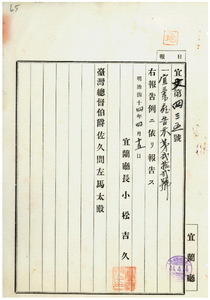 報
日
宜庶第四三五號
一宜蘭廳告示第貳拾貳號
右報告例ニ依リ報告ス
明治四十四年四月十五日
宜蘭廳長 小松吉久
臺灣總督伯爵佐久間左馬太殿
宜蘭廳